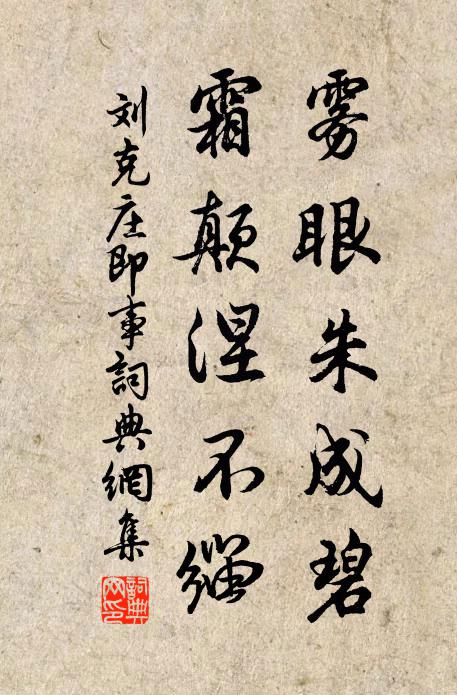 雾眼朱成碧
霜颠涅不缁
刘克庄即事詞典網集
詞典
网印